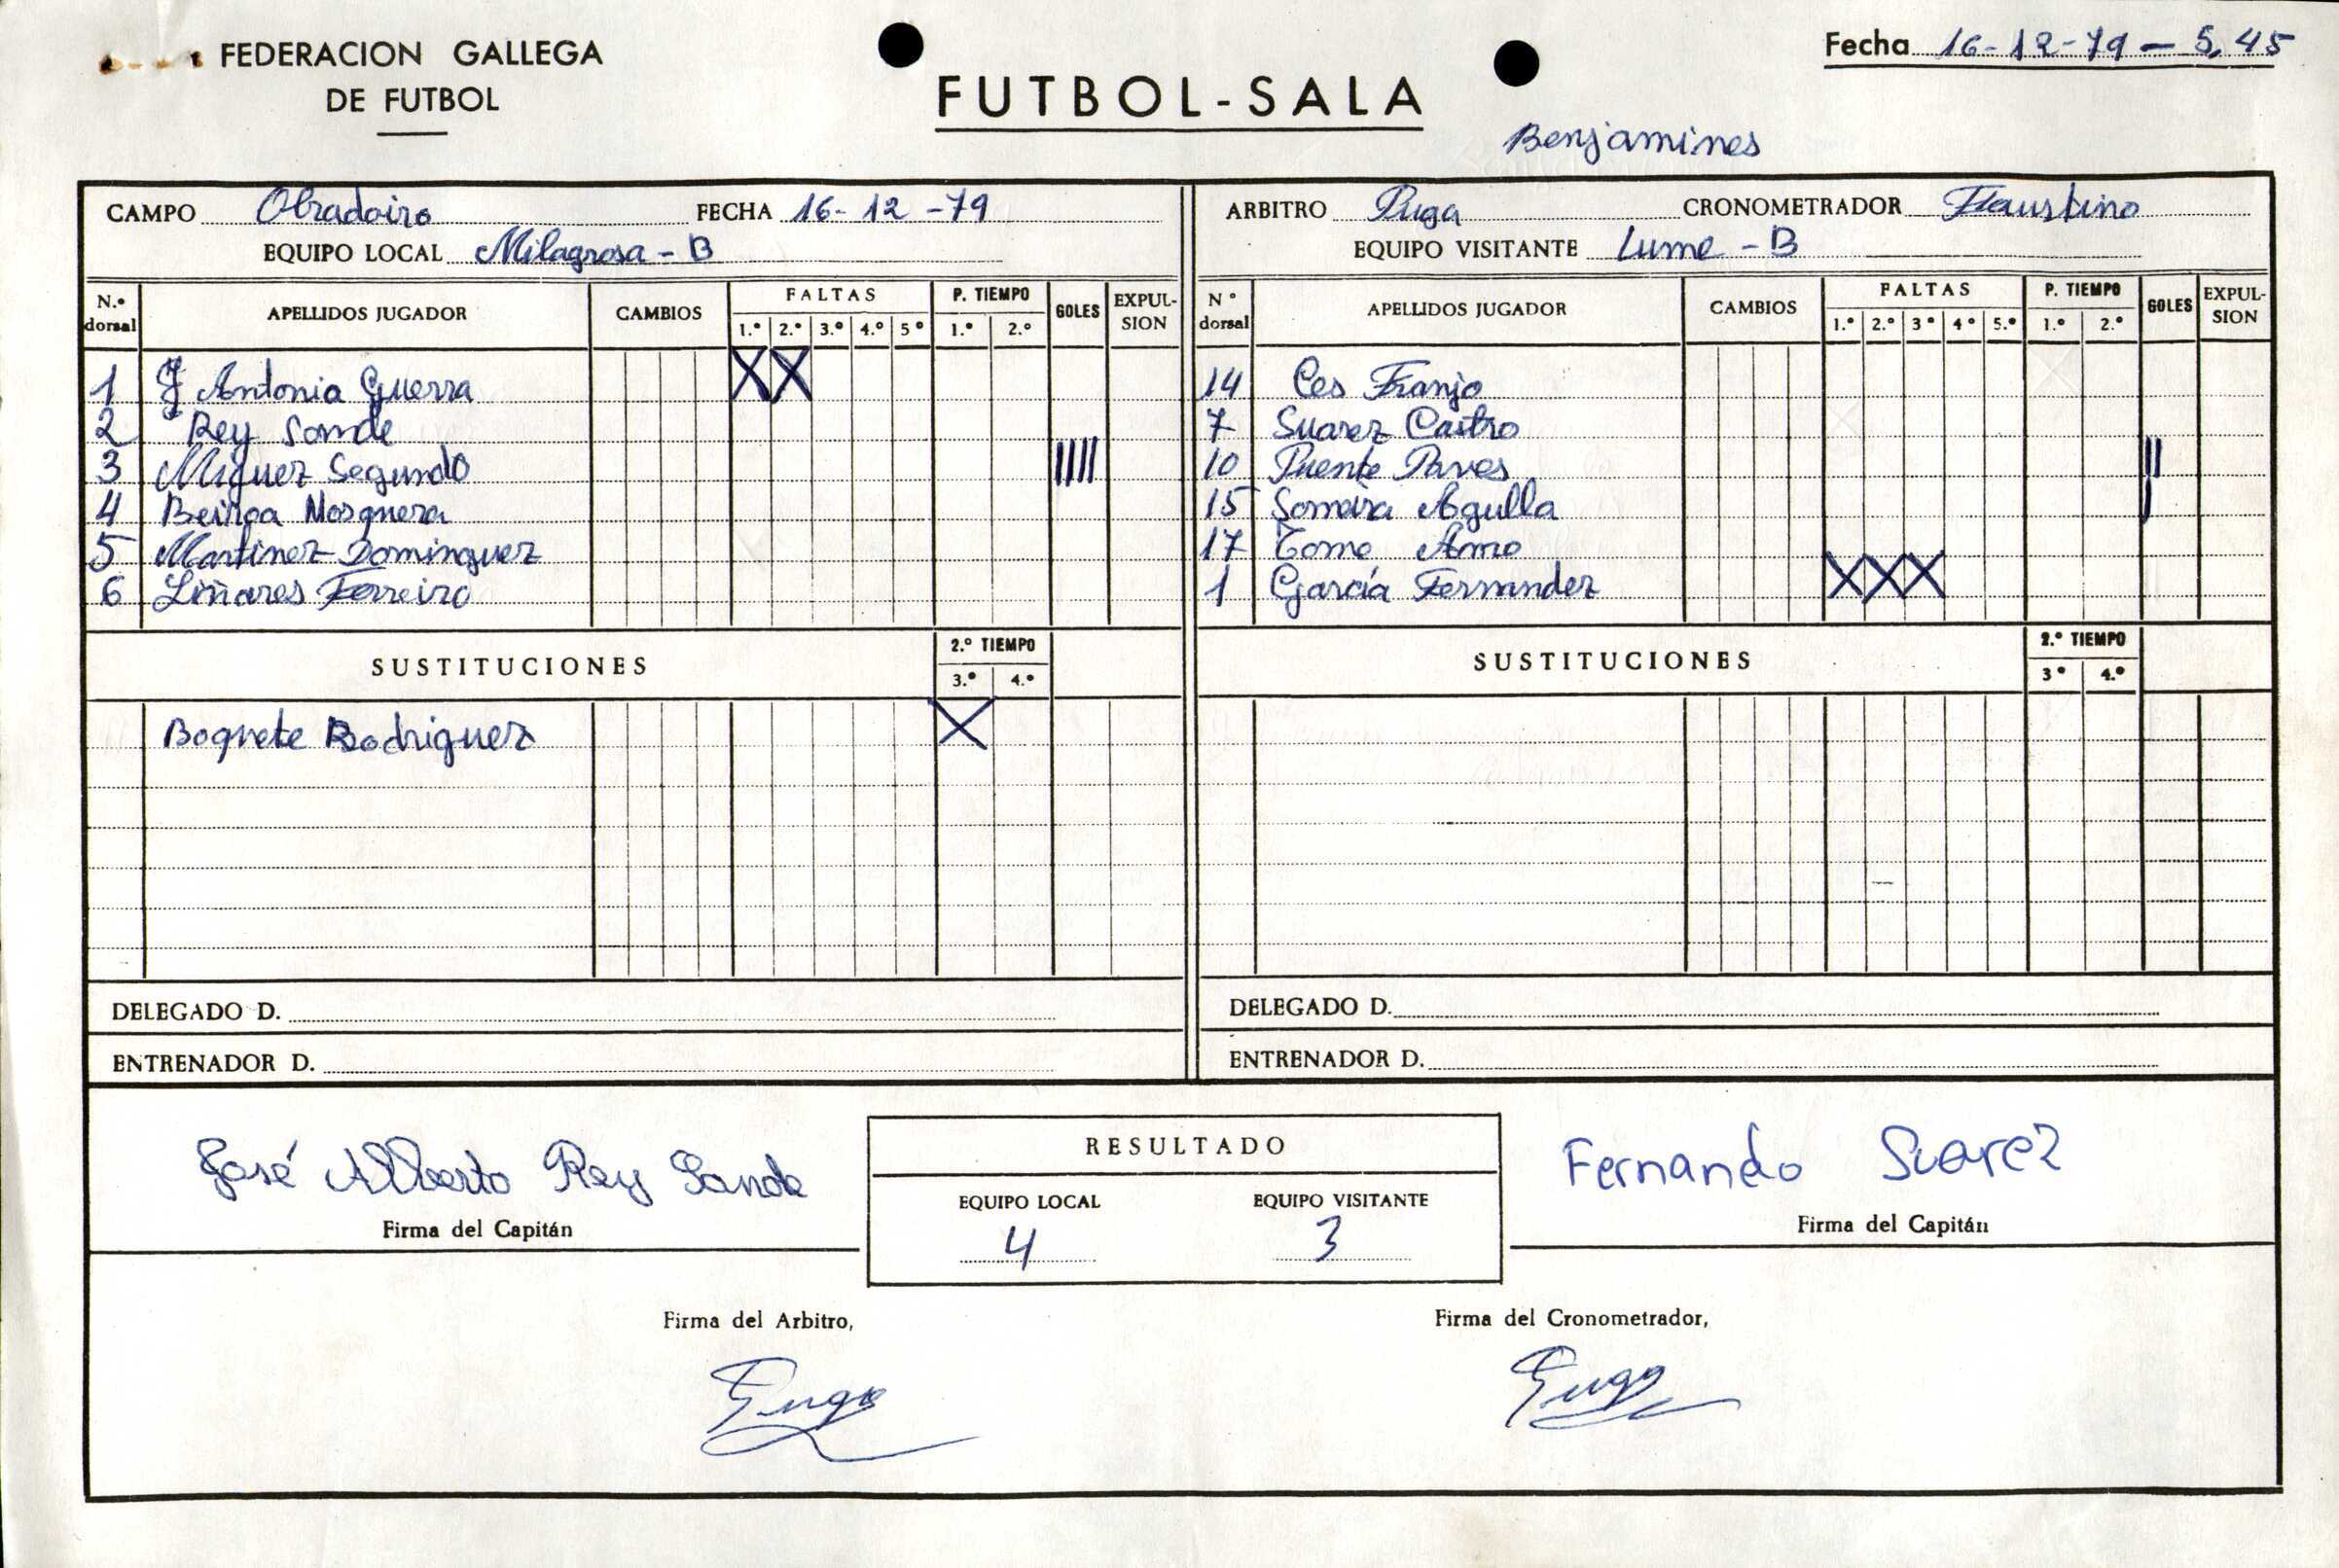 FEDERACION GALLEGA
DE FUTBOL
FUTBOL-SALA
Fecha 16-12-79 - 5,45
Benjamines
CAMPO Obradoiro FECHA 16-12-79
EQUIPO LOCAL Milagrosa - B
N.º dorsal APELLIDOS JUGADOR CAMBIOS FALTAS 1.º 2.º 3.º 4.º 5º P. TIEMPO 1.º 2.º GOLES EXPULSION
1 J Antonio Guerra X X
2 Rey Sande
3 Miguez Segundo ||||
4 Beiroa Mosquera
5 Martinez Dominguez
6 Liñares Ferreiro
SUSTITUCIONES 2.º TIEMPO 3.º 4.º
Boquete Rodriguez X
DELEGADO D.
ENTRENADOR D.
ARBITRO Puga CRONOMETRADOR Faustino
EQUIPO VISITANTE Lume - B
Nº dorsal APELLIDOS JUGADOR CAMBIOS FALTAS 1.º 2.º 3º 4º 5.º P. TIEMPO 1.º 2.º GOLES EXPULSION
14 Ces Franjo
7 Suarez Castro
10 Puente Pavos ||
15 Someira Agulla |
17 Tome Amo
1 García Fernandez X X X
SUSTITUCIONES 2.º TIEMPO 3º 4.º
DELEGADO D.
ENTRENADOR D.
José Alberto Rey Sande
Firma del Capitán
RESULTADO
EQUIPO LOCAL EQUIPO VISITANTE
4 3
Fernando Suarez
Firma del Capitán
Firma del Arbitro,
Puga
Firma del Cronometrador,
Puga